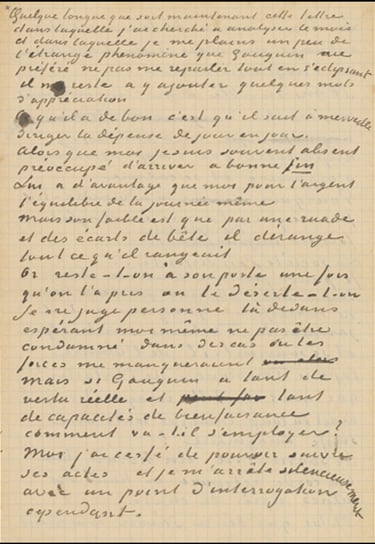 Quelque longue que soit maintenant cette lettre
dans laquelle j'ai cherché a analyser le mois
et dans laquelle je me plains un peu de
l'étrange phénomène que Gauguin aie
préféré ne pas me reparler tout en s'eclipsant
il me reste a y ajouter quelques mots
d'appréciation
Ce qu'il a de bon c'est qu'il sait à merveille
diriger la dépense de jour en jour.
Alors que moi je suis souvent absent
preoccupé d'arriver a bonne fin
Lui a d'avantage que moi pour l'argent
l'équilibre de la journée même
Mais son faible est que par une ruade
et des écarts de bête il dérange
tout ce qu'il rangeait
Or reste-t-on à son poste une fois
qu'on l'a pris ou le déserte-t-on
Je ne juge personne là dedans
espérant moi même ne pas être
condamné dans des cas où les
forces me manqueraient
mais si Gauguin a tant de
vertu réelle et tant
de capacités de bienfaisance
comment va-t-il s'employer?
Moi j'ai cessé de pouvoir suivre
ses actes et je m'arrête silencieusement
avec un point d'interrogation
cependant.